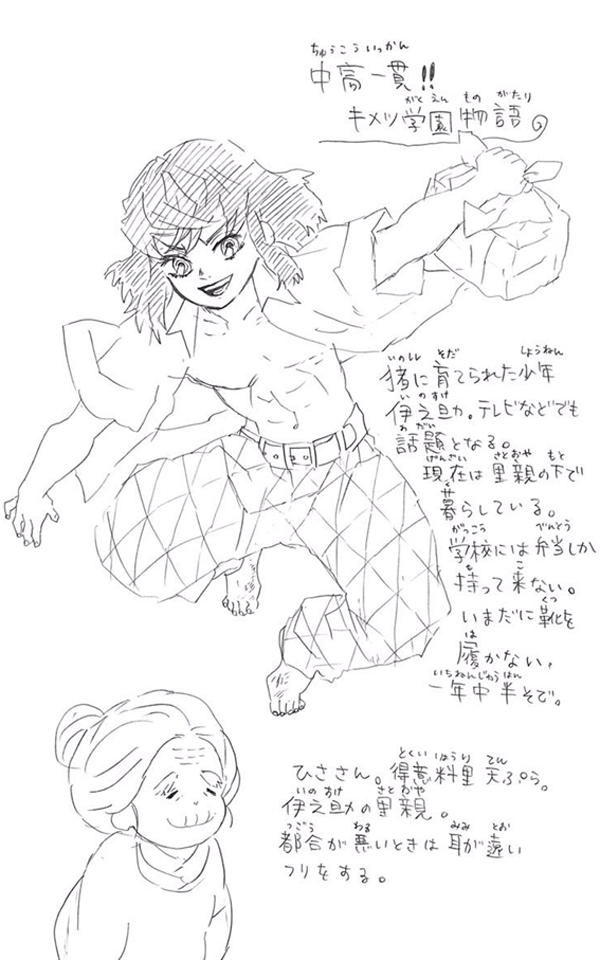 ちゅうこういっかん
中高一貫!!
がくえん ものがたり
キメツ学園物語。
いのしし そだ しょうねん
猪に育てられた少年
いのすけ
伊之助。テレビなどでも
わだい
話題となる。
げんざい さとおや もと
現在は里親の下で
く
暮らしている。
がっこう べんとう
学校には弁当しか
も こ
持って来ない。
くつ
いまだに靴を
は
履かない。
いちねんじゅうはん
一年中半そで。
とくいりょうり てん
ひささん。得意料理天ぷら。
いのすけ さとおや
伊之助の里親。
つごう わる みみ とお
都合が悪いときは耳が遠い
フリをする。